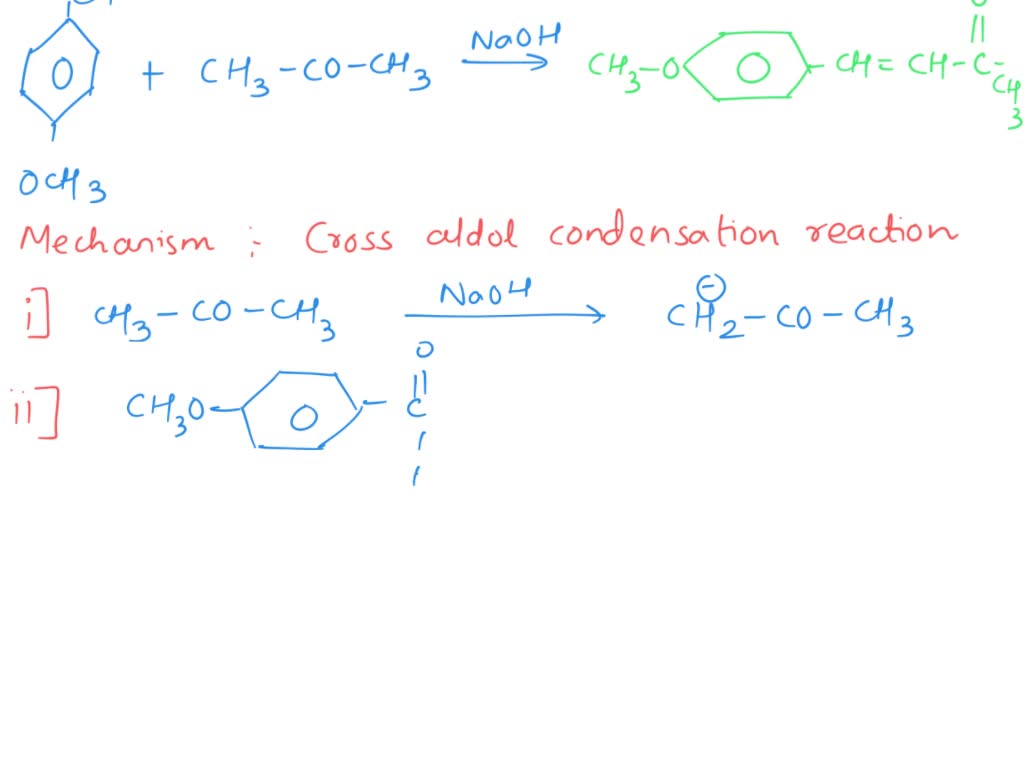 + CH3-CO-CH3 NaOH CH3-O CH=CH-C-CH3
OCH3
Mechanism : Cross aldol condensation reaction
i] CH3-CO-CH3 NaOH CH2-CO-CH3
O
ii] CH3O- -C